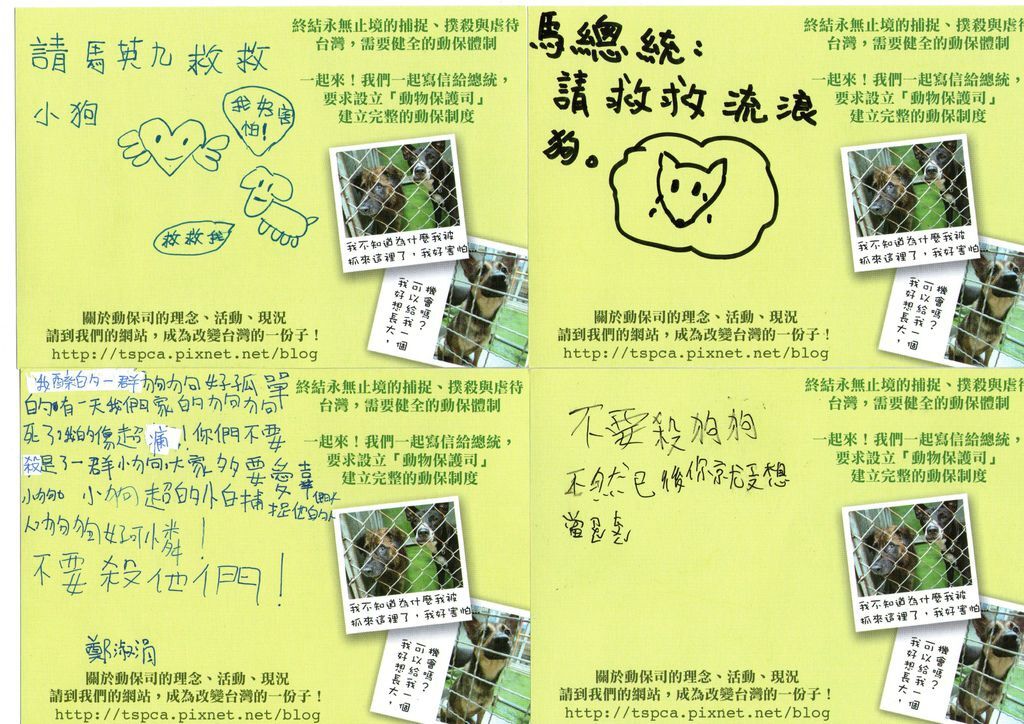 請馬英九救救
小狗
我好害
怕!
救救我
終結永無止境的捕捉、撲殺與虐待
台灣，需要健全的動保體制
一起來！我們一起寫信給總統，
要求設立「動物保護司」
建立完整的動保制度
我不知道為什麼我被
抓來這裡了，我好害怕...
機會嗎？
可以給我一個
我好想長大，
關於動保司的理念、活動、現況
請到我們的網站，成為改變台灣的一份子！
http://tspca.pixnet.net/blog
馬總統：
請救救流浪
狗。
終結永無止境的捕捉、撲殺與虐
台灣，需要健全的動保體制
一起來！我們一起寫信給總統，
要求設立「動物保護司」
建立完整的動保制度
我不知道為什麼我被
抓來這裡了，我好害怕...
機會嗎？
可以給我一個
我好想長大，
關於動保司的理念、活動、現況
請到我們的網站，成為改變台灣的一份子！
http://tspca.pixnet.net/blog
的有一天我們家的狗狗
死了我的傷超痛！你們不要
殺是了一群小狗大家多要愛
狗狗好可憐！
不要殺他們！
鄭淑涓
終結永無止境的捕捉、撲殺與虐待
台灣，需要健全的動保體制
一起來！我們一起寫信給總統，
要求設立「動物保護司」
建立完整的動保制度
我不知道為什麼我被
抓來這裡了，我好害怕...
機會嗎？
可以給我一個
我好想長大，
關於動保司的理念、活動、現況
請到我們的網站，成為改變台灣的一份子！
http://tspca.pixnet.net/blog
不要殺狗狗
不然已後你就受想
終結永無止境的捕捉、撲殺與虐
台灣，需要健全的動保體制
一起來！我們一起寫信給總統，
要求設立「動物保護司」
建立完整的動保制度
我不知道為什麼我被
抓來這裡了，我好害怕...
機會嗎？
可以給我一個
我好想長大，
關於動保司的理念、活動、現況
請到我們的網站，成為改變台灣的一份子！
http://tspca.pixnet.net/blog